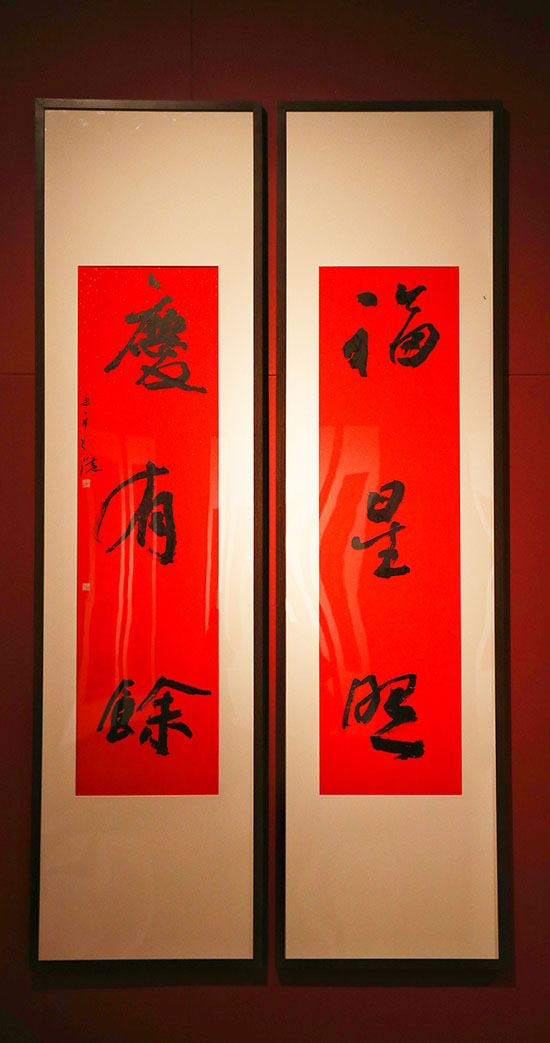 福星照
慶有餘